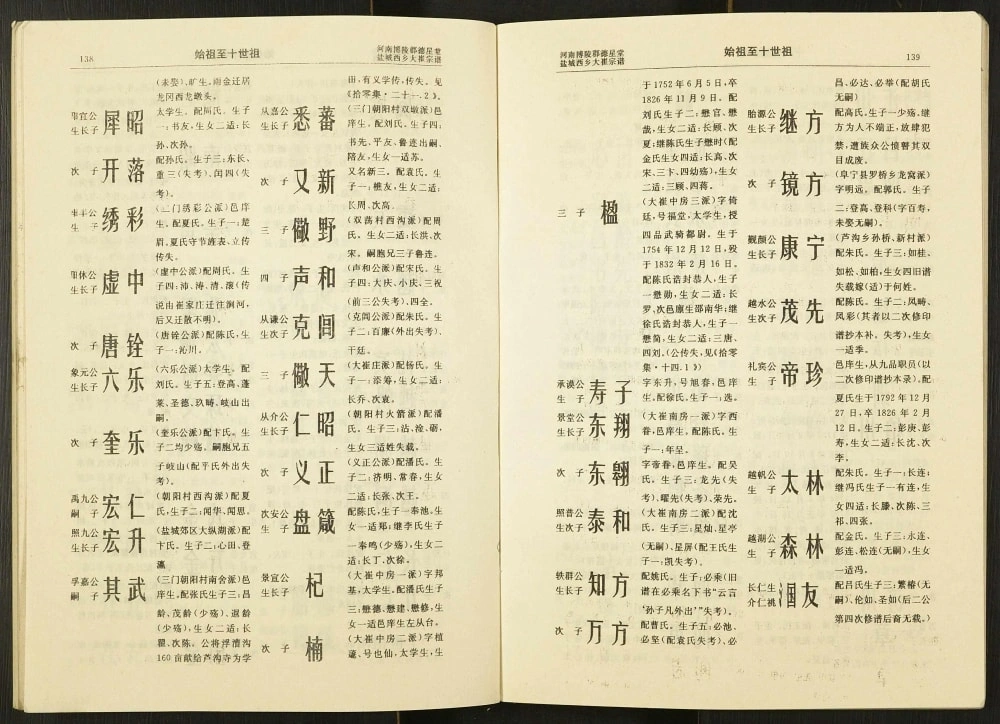 138
始祖至十世祖
河南博陵郡德星堂
盐城西乡大崔宗谱
(未娶)、旷生,雨金迁居
龙冈西龙墩头。
生长子
犀昭
太学生。配周氏。生子
一:书友,生女二适:长
孙、次孙。
次子
开落
配孙氏。生子三:东长、
重三(失考)、闰四(失
考)。
生子
绣彩
(三门绣彩公派)邑庠
生。配夏氏。生子一:楚
眉,夏氏守节旌表、立传
传失。
生长子
虚中
(虚中公派)配周氏。生
子四:沛、涛、清、滚(传
说由崔家庄迁往涧河,
后又迁散不明)。
次子
唐铨
(唐铨公派)配陈氏,生
子一:沁川。
象元公
生长子
六乐
(六乐公派)太学生。配
刘氏。生子五:登高、蓬
莱、圣德、玖畴、岐山出
嗣。
次子
奎乐
(奎乐公派)配卞氏。生
子二均少殇。嗣胞兄五
子岐山(配平氏外出失
考)。
禹九公
嗣子
宏仁
(朝阳村西沟派)配夏
氏,生子二:闻华、闻思。
照九公
生长子
宏升
(盐城郊区大纵湖派)配
卞氏。生子二:心田、登
瀛
孚嘉公
嗣子
其武
(三门朝阳村南舍派)邑
庠生。配张氏生子三:昌
龄、茂龄(少殇)、遐龄
(少殇),生女二适:长
瞿、次陈。公将浮漕沟
160亩献给芦沟寺为学
田,有义学传,传失。见
《拾零集·二十一.2》。
从嘉公
生长子
悉蕃
(三门朝阳村双墩派)邑
庠生。配刘氏。生子四:
书先、平友、鲁连出嗣、
陪友,生女一适苏。
次子
又新
又名新三。配袁氏。生
子一:樵友,生女二适:
长周、次高。
三子
儆野
(双荡村西沟派)配周
氏。生女二适:长洪、次
宋。嗣胞兄三子鲁连。
四子
声和
(声和公派)配宋氏。生
子四:大庆、小庆、三祝
(前三公失考)、四全。
从谦公
生次子
克闾
(克闾公派)配朱氏。生
子二:百廉(外出失考)、
干廷。
三子
儆天
(大崔庄派)配杨氏。生
子一:添筹,生女二适:
长乔、次袁。
从介公
生长子
仁昭
(朝阳村火箭派)配潘
氏。生子三:沾、淦、砺,
生女三适姓失载。
次子
义正
(义正公派)配潘氏。生
子二:济明、常春,生女
二适:长张、次王。
次安公
生子
盘箴
配陈氏,生子一奉池。生
女一适郑;继李氏生子
一奉鸣(少殇),生女二
适:长丁、次徐。
景宣公
生长子
杞
(大崔中房一派)字邦
基,太学生。配潘氏生子
三:懋德、懋建、懋修,生
女一适邑庠生左从台。
次子
楠
(大崔中房二派)字植
蘧、号也仙,太学生,生
河南博陵郡德星堂
盐城西乡大崔宗谱
始祖至十世祖
139
于1752年6月5日,卒
1826年11月9日。配
刘氏生子二:懋官、懋
哉,生女二适:长顾、次
夏;继陈氏生子懋时(配
金氏生女四适:长高、次
宋、三卞、四幼殇),生女
二适:三顾、四蒋。
三子
楹
(大崔中房三派)字倚
廷,号福堂,太学生,授
四品武骑都尉。生于
1754年12月12日,殁
于1832年2月16日。
配陈氏诰封恭人,生子
一懋勋,生女二适:长
罗、次邑廪生邵南华;继
徐氏诰封恭人,生子一
懋简;生女二适:三唐、
四刘。(公传失,见《拾零
集·十四.1》)
承谟公
生子
寿子
字东升,号旭春,邑庠
生。配徐氏。生子一:选。
景堂公
生长子
东翔
(大崔南房一派)字西
眷,邑庠生。配陈氏。生
子一:年呈。
次子
东翱
字帝眷,邑庠生。配吴
氏。生子三:龙先(失
考)、曜先(失考)、荣先。
照普公
生次子
泰和
(大崔南房二派)配沈
氏。生子三:星灿、星亭
(无嗣)、星屏(配王氏生
子一:凯失考)。
轶群公
生长子
知方
配姚氏。生子:必乘(旧
谱在必乘名下书“云言
‘孙子凡外出’”失考)。
次子
万方
配曹氏。生子五:必池、
必坚(配袁氏失考)、必
昌、必达、必举(配胡氏
无嗣)
胎源公
生长子
继方
配高氏。生子一少殇。继
方为人不端正,放肆犯
禁,遭族众公愤瞽其双
目成废。
次子
镜方
(阜宁县罗桥乡龙窝派)
字明远。配郭氏。生子
二:登高、登科(字百寿,
未娶无嗣)。
觐颜公
生长子
康宁
(芦沟乡孙桥、新村派)
配朱氏。生子三:如桂、
如松、如柏,生女四旧谱
失载嫁(适)于何姓。
越水公
生次子
茂先
配陈氏。生子二:凤畴、
凤彩(其者以二次修印
谱抄本补。失考),生女
一适季。
礼宾公
生子
帝珍
邑庠生,从九品职员(以
二次修印谱抄本录)。配
夏氏生于1792年12月
27日,卒1826年2月
12日。生子二:彭庚、彭
寿,生女二适:长沈、次
李。
越帆公
生子
太林
配朱氏。生子一:长连;
继冯氏生子一有连,生
女四适:长滕、次陈、三
祁、四张。
越湖公
生子
森林
配金氏。生子三:永连、
彭连、松连(无嗣),生女
一适冯。
长仁生
介仁祧
涸友
配吕氏生子三:繁椿(无
嗣)、伦如、圣如(后二公
第四次修谱后裔无载。)